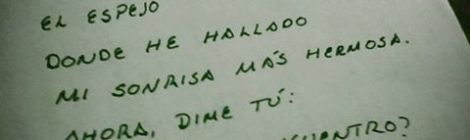 EL ESPEJO
DONDE HE HALLADO
MI SONRISA MÁS HERMOSA.
AHORA, DIME TÚ: